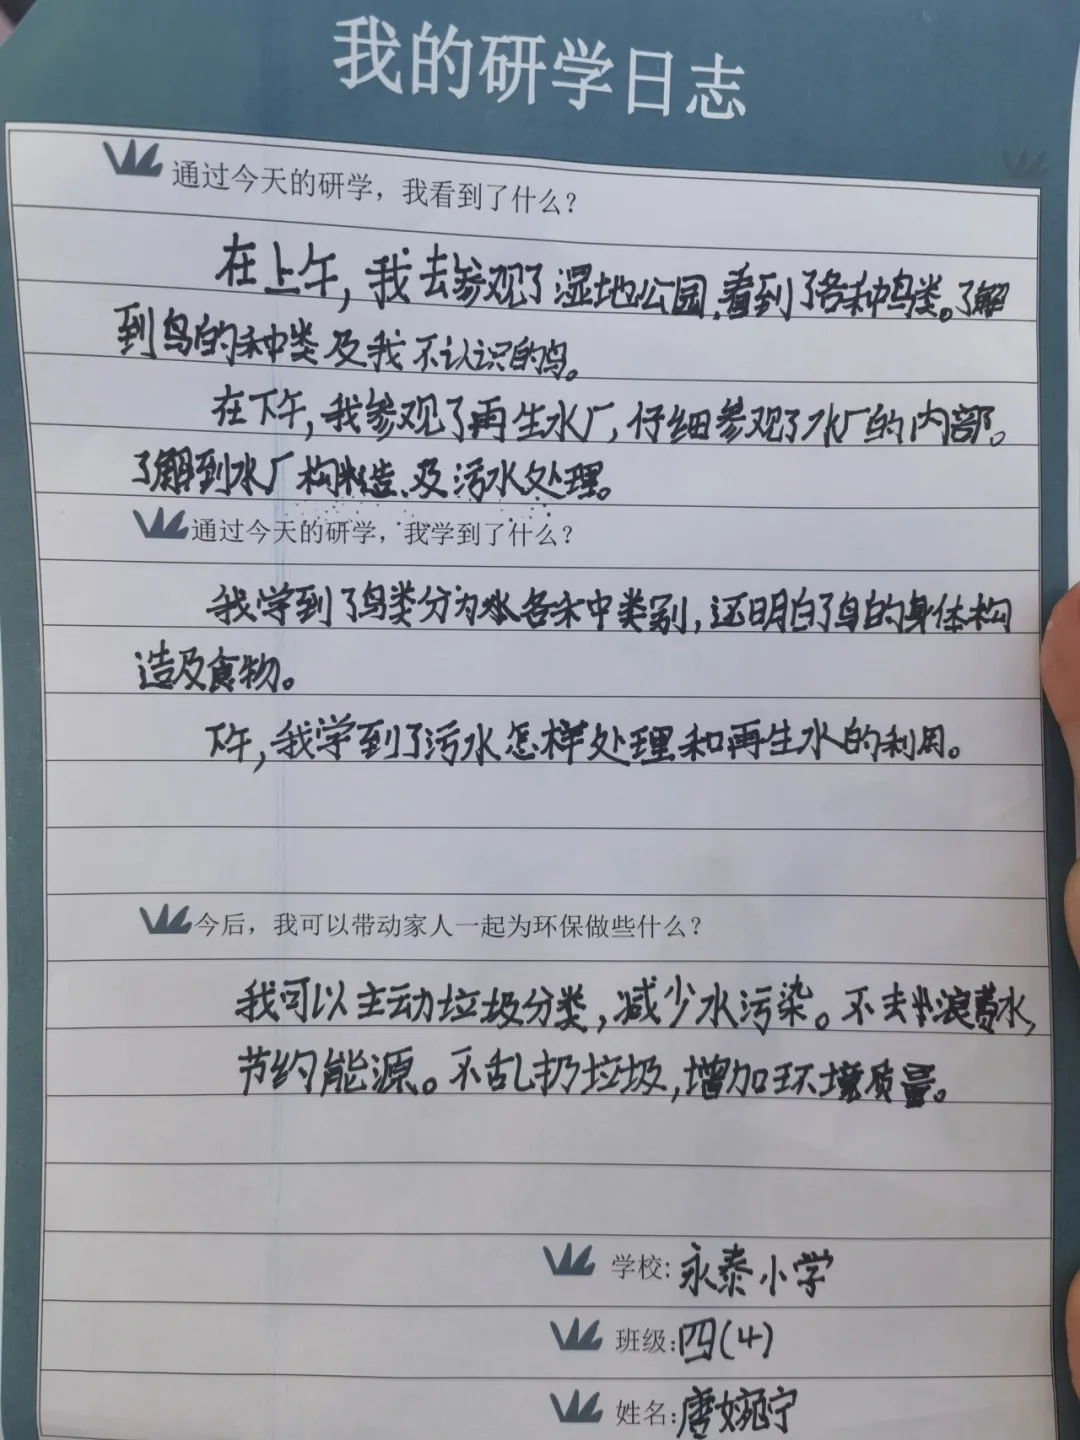 我的研学日志
通过今天的研学，我看到了什么？
在上午，我去参观了湿地公园，看到了各种鸟类。了解
到鸟的种类及我不认识的鸟。
在下午，我参观了再生水厂，仔细参观了水厂的内部。
了解到水厂构造、及污水处理。
通过今天的研学，我学到了什么？
我学到了鸟类分为各种类别，还明白了鸟的身体构
造及食物。
下午，我学到了污水怎样处理和再生水的利用。
今后，我可以带动家人一起为环保做些什么？
我可以主动垃圾分类，减少水污染。不去浪费水，
节约能源。不乱扔垃圾，增加环境质量。
学校：永泰小学
班级：四(4)
姓名：唐婉宁